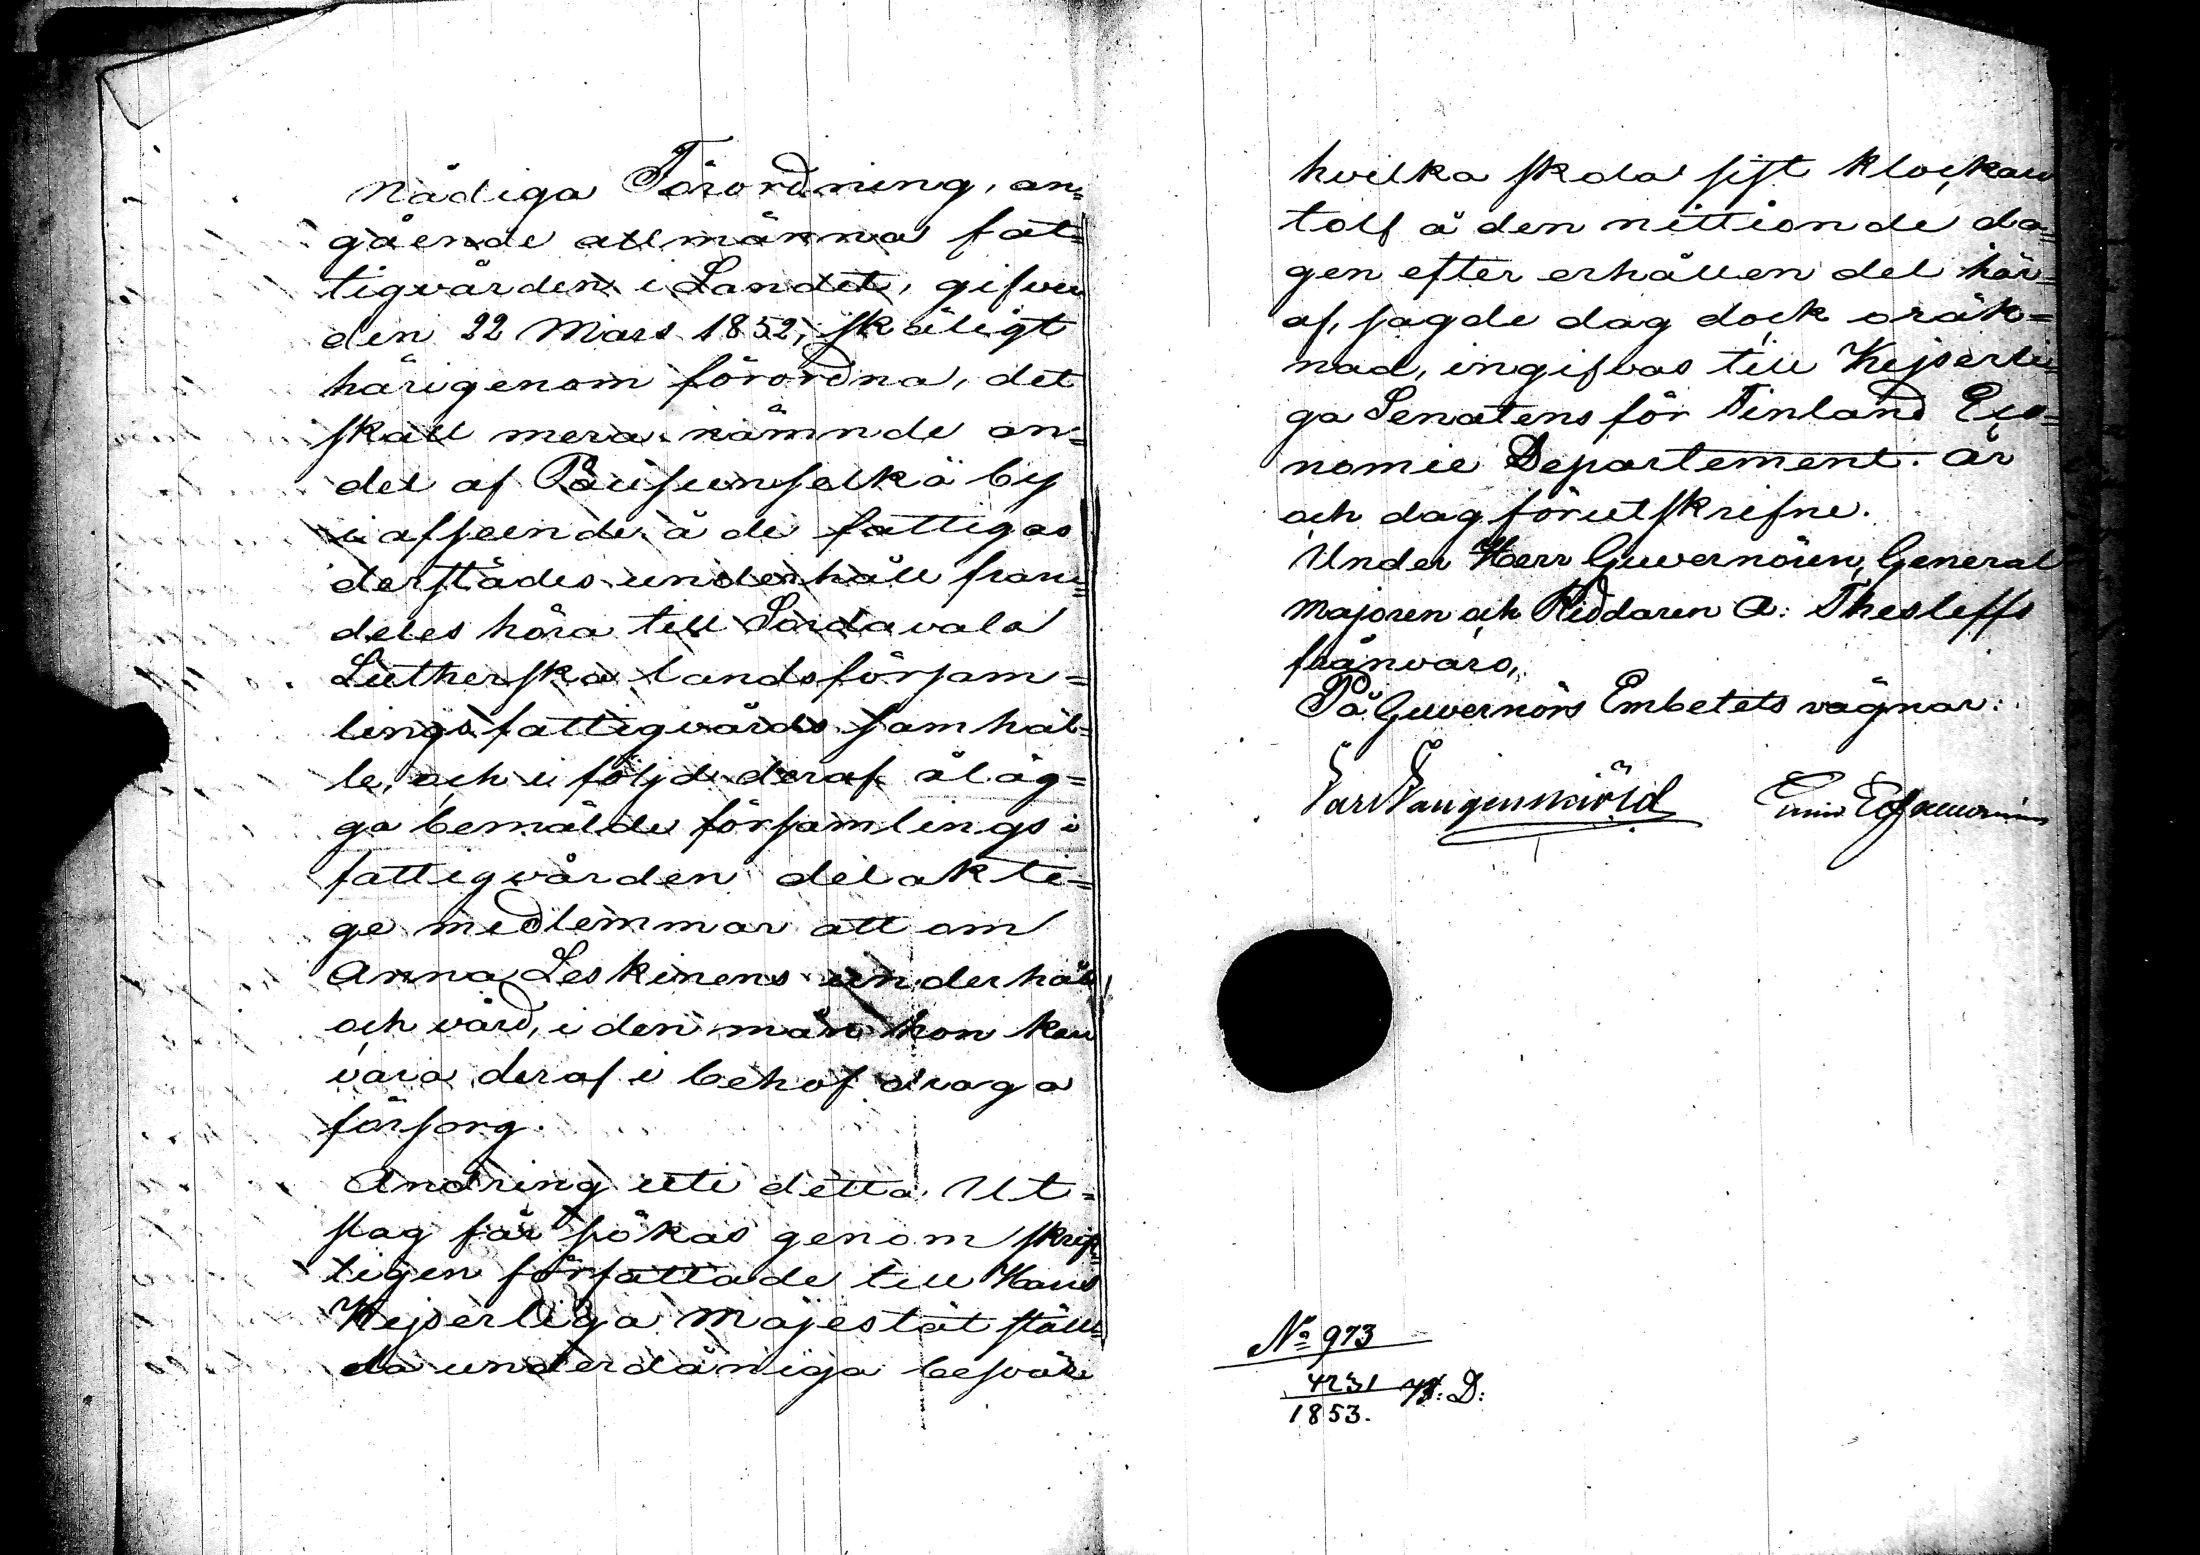 nådiga Förordning, an=
gående allmänna fat=
tigvården i Landet, gifven
den 22 Mars 1852, skäligt
härigenom förordna, det
skall mera nämnde an=
del af by
i afseende å de fattigas
derstädes underhåll fram=
deles höra till Sordavala
Lutherska landsförsam=
lings fattigvårds samhäl=
le, och i följd deraf åläg=
ga bemälde församlings i
fattigvården delakti=
ge medlemmar att om
Anna Leskinens underhåll
och vård, i den mån hon kan
vara deraf i behof draga
försorg.
Ändring uti detta Ut=
slag får sökas genom skrift=
ligen författade till Hans
Kejserliga Majestät ställ=
da underdåniga besvär
hvilka skola sist klockan
tolf å den nittionde da=
gen efter erhållen del här=
af, sagde dag dock oräk=
nad, ingifvas till Kejserli=
ga Senatens för Finland Eco=
nomie Departement. År
och dag förutskrifne.
Under Herr Guvernören, General
majoren och Riddaren A: Thesleffs
frånvaro,
På Guvernörs Embetets vägnar:
No 973
4231
1853. D: